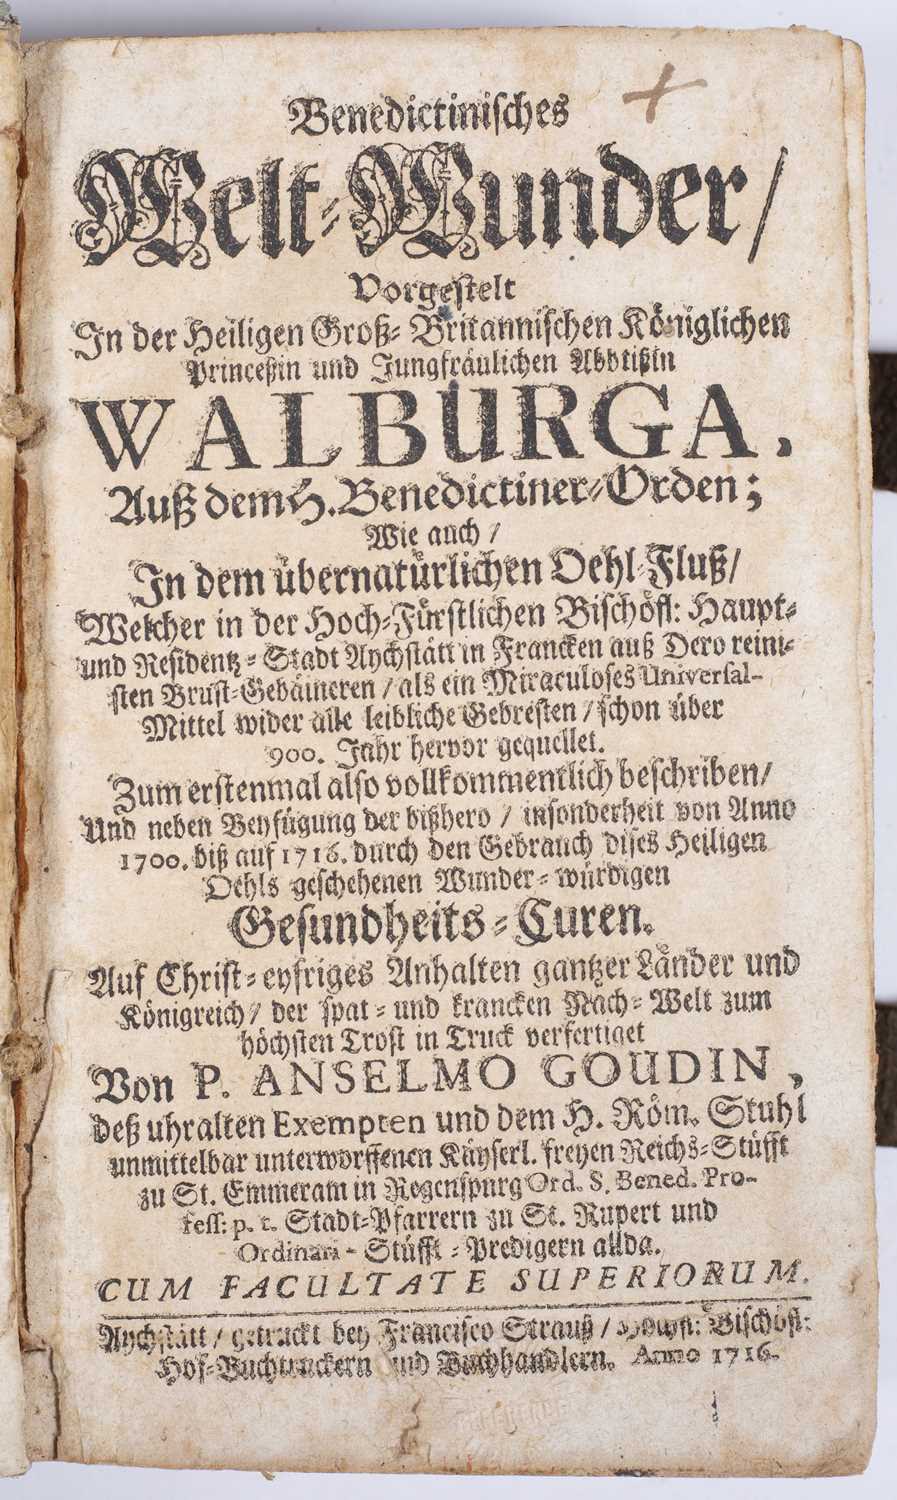 Benedictinisches
Welt-Wunder/
Vorgestelt
In der Heiligen Groß-Britannischen Königlichen
Princeßin und Jungfräulichen Abbtißin
WALBURGA,
Auß dem H. Benedictiner-Orden;
Wie auch/
In dem übernatürlichen Oehl-Fluß/
Welcher in der Hoch-Fürstlichen Bischöfl: Haupt-
und Residentz-Stadt Aychstätt in Francken auß Dero reini-
sten Brust-Gebäineren/als ein Miraculoses Universal-
Mittel wider alle leibliche Gebresten/schon über
900. Jahr hervor gequellet.
Zum erstenmal also vollkommentlich beschriben/
Und neben Beyfügung der bißhero/ insonderheit von Anno
1700. biß auf 1716. durch den Gebrauch dises Heiligen
Oehls geschehenen Wunder-würdigen
Gesundheits-Curen.
Auf Christ-eyfriges Anhalten gantzer Länder und
Königreich/ der spat- und krancken Nach-Welt zum
höchsten Trost in Truck verfertiget
Von P. ANSELMO GOUDIN,
deß uhralten Exempten und dem H. Röm. Stuhl
unmittelbar unterworffenen Käyserl. freyen Reichs-Stüfft
zu St. Emmeram in Regenspurg Ord. S. Bened. Pro-
fess: p. t. Stadt-Pfarrern zu St. Rupert und
Ordinari-Stüfft-Predigern allda.
CUM FACULTATE SUPERIORUM.
Aychstätt/ getruckt bey Francisco Strauß/ Hochfl: Bischöfl:
Hof-Buchtruckern und Buchhandlern. Anno 1716.